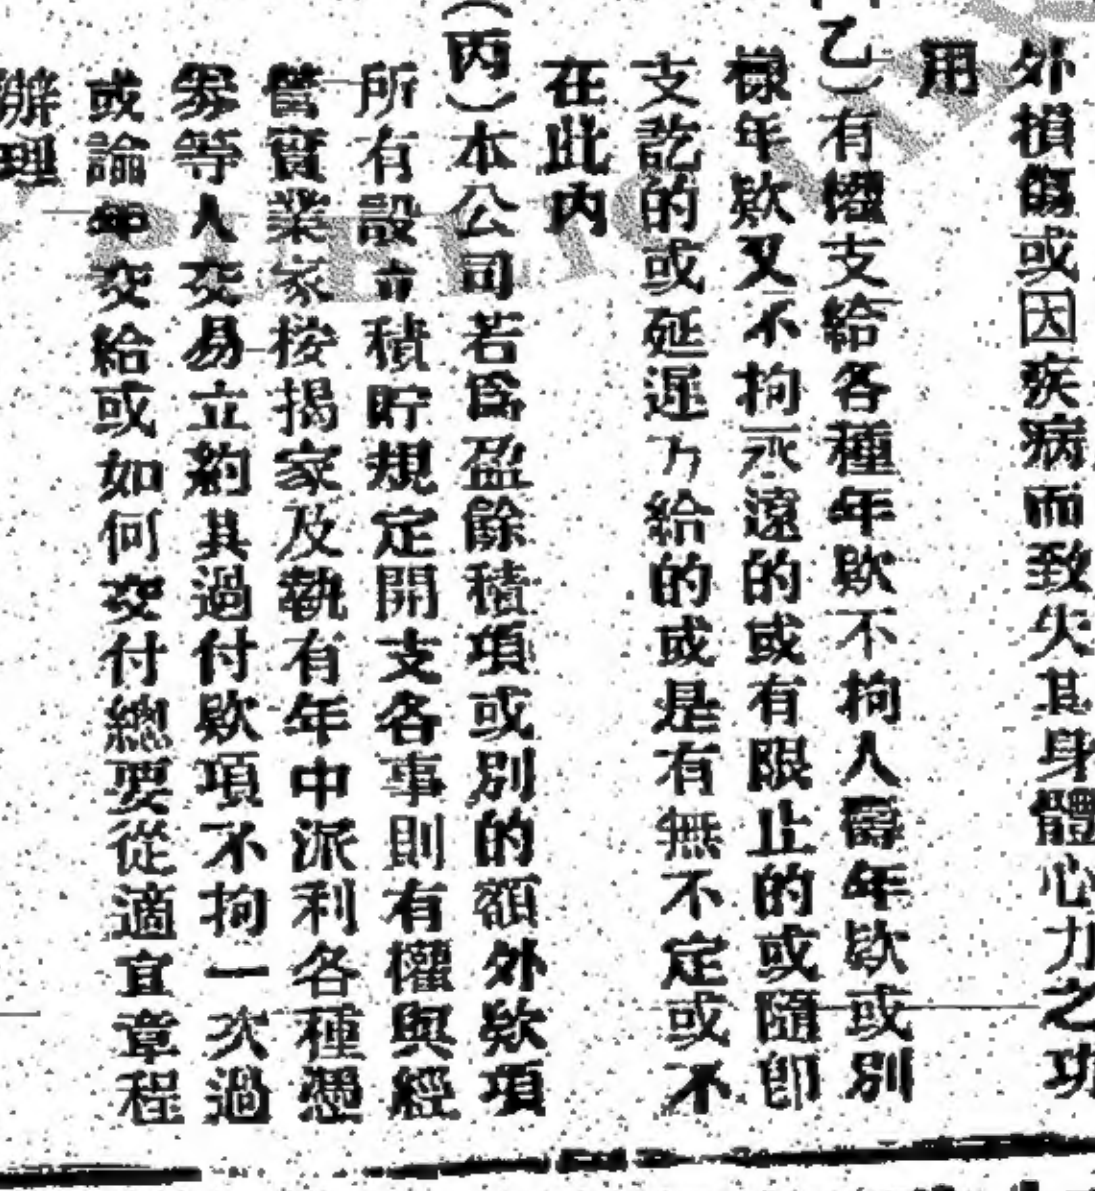 外損傷或因疾病而致失其身體心力之功
用
乙)有權支給各種年欵不拘人壽年欵或別
樣年欵又不拘永遠的或有限止的或隨即
支訖的或延遲乃給的或是有無不定或不
在此內
(丙)本公司若爲盈餘積項或別的額外欵項
所有設立積貯規定開支各事則有權與經
營實業家按揭家及執有年中派利各種憑
券等人交易立約其過付欵項不拘一次過
或論年交給或如何交付總要從適宜章程
辦理